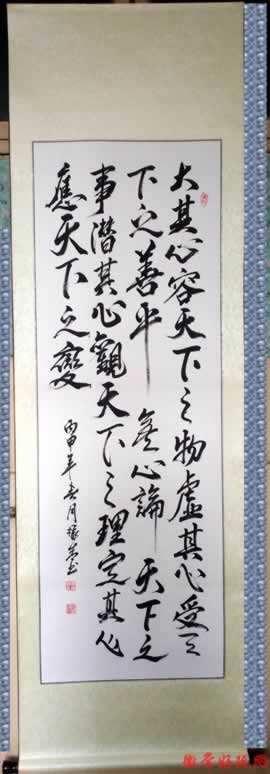 大其心容天下之物虛其心受天
下之善平其心論天下之
事潛其心觀天下之理定其心
應天下之變
丙申年春月